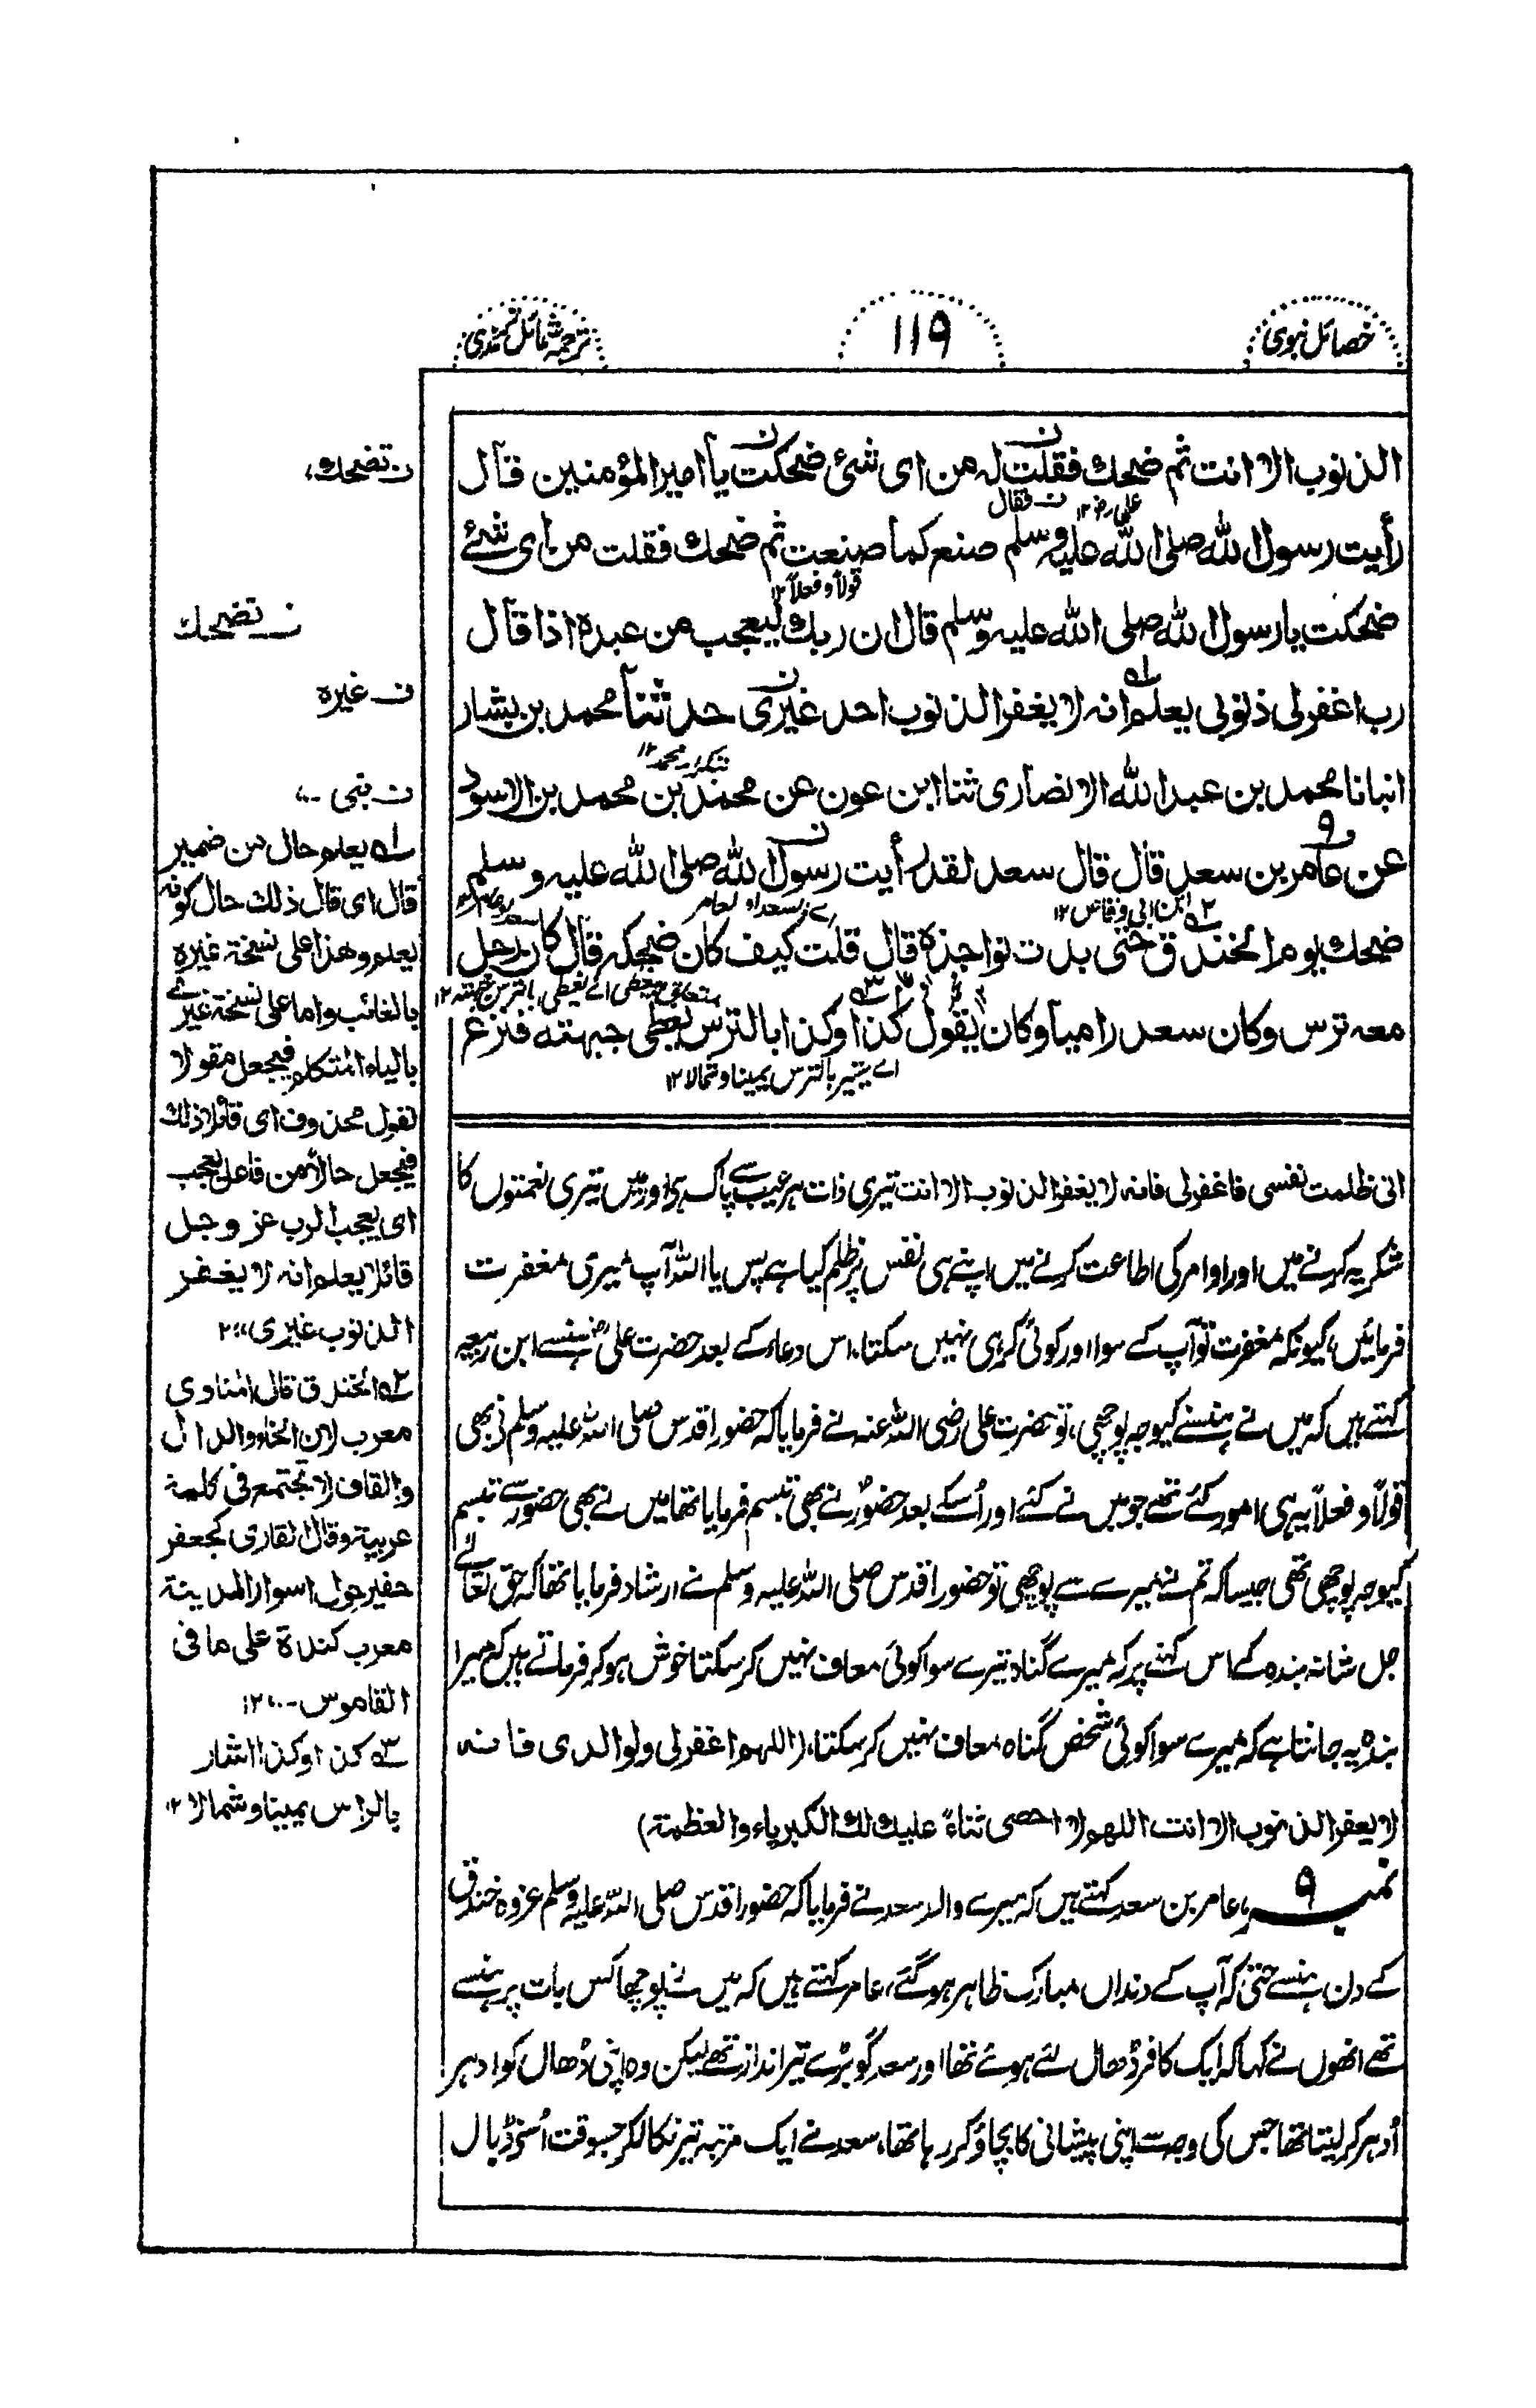 خصائل نبوی
۱۱۹
ترجمہ شمائل ترمذی
الذنوب الا انت ثم ضحك فقلت له من ای شئ ضحكت يا امير المؤمنين قال
علی رضؓ ۱۲ ن فقال
رأيت رسول الله صلی الله عليه وسلم صنع كما صنعت ثم ضحك فقلت من ای شئ
قولاً وفعلاً ۱۲
ضحكت يا رسول الله صلی الله عليه وسلم قال ان ربك ليعجب من عبده اذا قال
رب اغفر لی ذنوبی يعلم انه لا يغفر الذنوب احد غيری حدثنا محمد بن بشار
انبانا محمد بن عبد الله الانصاری ثنا ابن عون عن محمد بن محمد بن الاسود
عن عامر بن سعد قال قال سعد لقد رأيت رسول الله صلی الله عليه وسلم
ابن ابی وقاص ۱۲
ضحك يوم الخندق حتی بدت نواجذه قال قلت كيف كان ضحكه قال كان رجل
معه ترس وكان سعد راميا وكان يقول كذا وكذا بالترس يغطی جبهته فنزع
اے يشير بالترس يمينا وشمالا ۱۲
انی ظلمت نفسی فاغفرلی فانه لا يغفر الذنوب الا انت تیری ذات ہر عیب سے پاک ہے اور میں تیری نعمتوں کا
شکریہ کرنے میں اور اوامر کی اطاعت کرنے میں اپنے ہی نفس پر ظلم کیا ہے پس یا اللہ آپ میری مغفرت
فرمائیں، کیونکہ مغفرت تو آپ کے سوا اور کوئی کر ہی نہیں سکتا. اس دعاء کے بعد حضرت علیؓ ہنسے ابن ربیعہ
کہتے ہیں کہ میں نے ہنسنے کیوجہ پوچھی، تو حضرت علی رضی اللہ عنہ نے فرمایا کہ حضور اقدس صلی اللہ علیہ وسلم نے بھی
قولاً و فعلاً یہ ہی امور کئے تھے جو میں نے کئے اور اُسکے بعد حضورؐ نے بھی تبسم فرمایا تھا میں نے بھی حضور سے تبسم
کیوجہ پوچھی تھی جیسا کہ تم نے میرے سے پوچھی تو حضور اقدس صلی اللہ علیہ وسلم نے ارشاد فرمایا تھا کہ حق تعالےٰ
جل شانہ بندہ کے اس کہنے پر کہ میرے گناہ تیرے سوا کوئی معاف نہیں کر سکتا خوش ہو کر فرماتے ہیں کہ میرا
بندہ یہ جانتا ہے کہ میرے سوا کوئی شخص گناہ معاف نہیں کر سکتا، (اللهم اغفرلی ولوالدی فانه
لا يغفر الذنوب الا انت اللهم لا احصی ثناءً عليك لك الكبرياء والعظمة)
نمبر ۹ عامر بن سعد کہتے ہیں کہ میرے والد سعد نے فرمایا کہ حضور اقدس صلی اللہ علیہ وسلم غزوہ خندق
کے دن ہنسے حتیٰ کہ آپ کے دنداں مبارک ظاہر ہو گئے، عامر کہتے ہیں کہ میں نے پوچھا کس بات پر ہنسے
تھے انھوں نے کہا کہ ایک کافر ڈھال لئے ہوئے تھا اور سعد گو بڑے تیر انداز تھے لیکن وہ اپنی ڈھال کو ادہر
اُدہر کر لیتا تھا جس کی وجہ سے اپنی پیشانی کا بچاؤ کر رہا تھا، سعد نے ایک مرتبہ تیر نکالکر جسوقت اُسنے ڈہال
ن تضحك،
ن تضحك
ن غيره
ن بتی
۱ه يعلم حال من ضمير
قال ای قال ذلك حال كونه
يعلم وهذا علی نسخة غيره
بالغائب واما علی نسخة غيری
بالياء المتكلم فيجعل مقولا
لقول محذوف ای قائلا ذلك
فيجعل حالا من فاعل يعجب
ای يعجب الرب عز وجل
قائلا يعلم انه لا يغفر
الذنوب غيری ۱۲
۲ه الخندق قال المناوی
معرب لان الخاء والدال
والقاف لا تجتمع فی كلمة
عربية وقال القاری كجعفر
حفير حول اسوار المدينة
معرب كندة علی ما فی
القاموس ۔ ۱۲
۳ه كذا وكذا اشار
بالراس يمينا وشمالا ۱۲